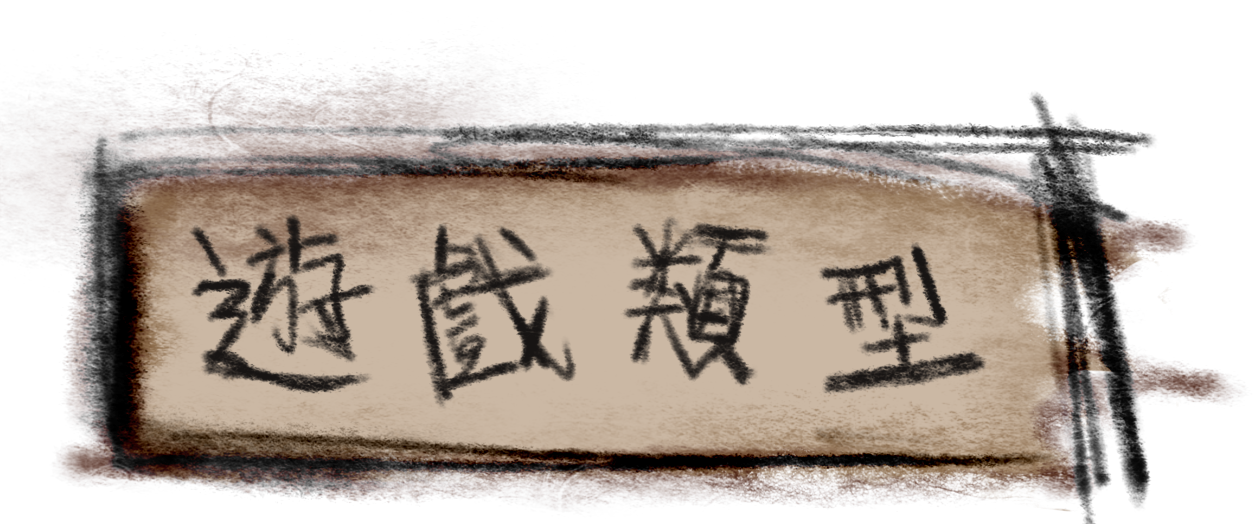 遊戲類型